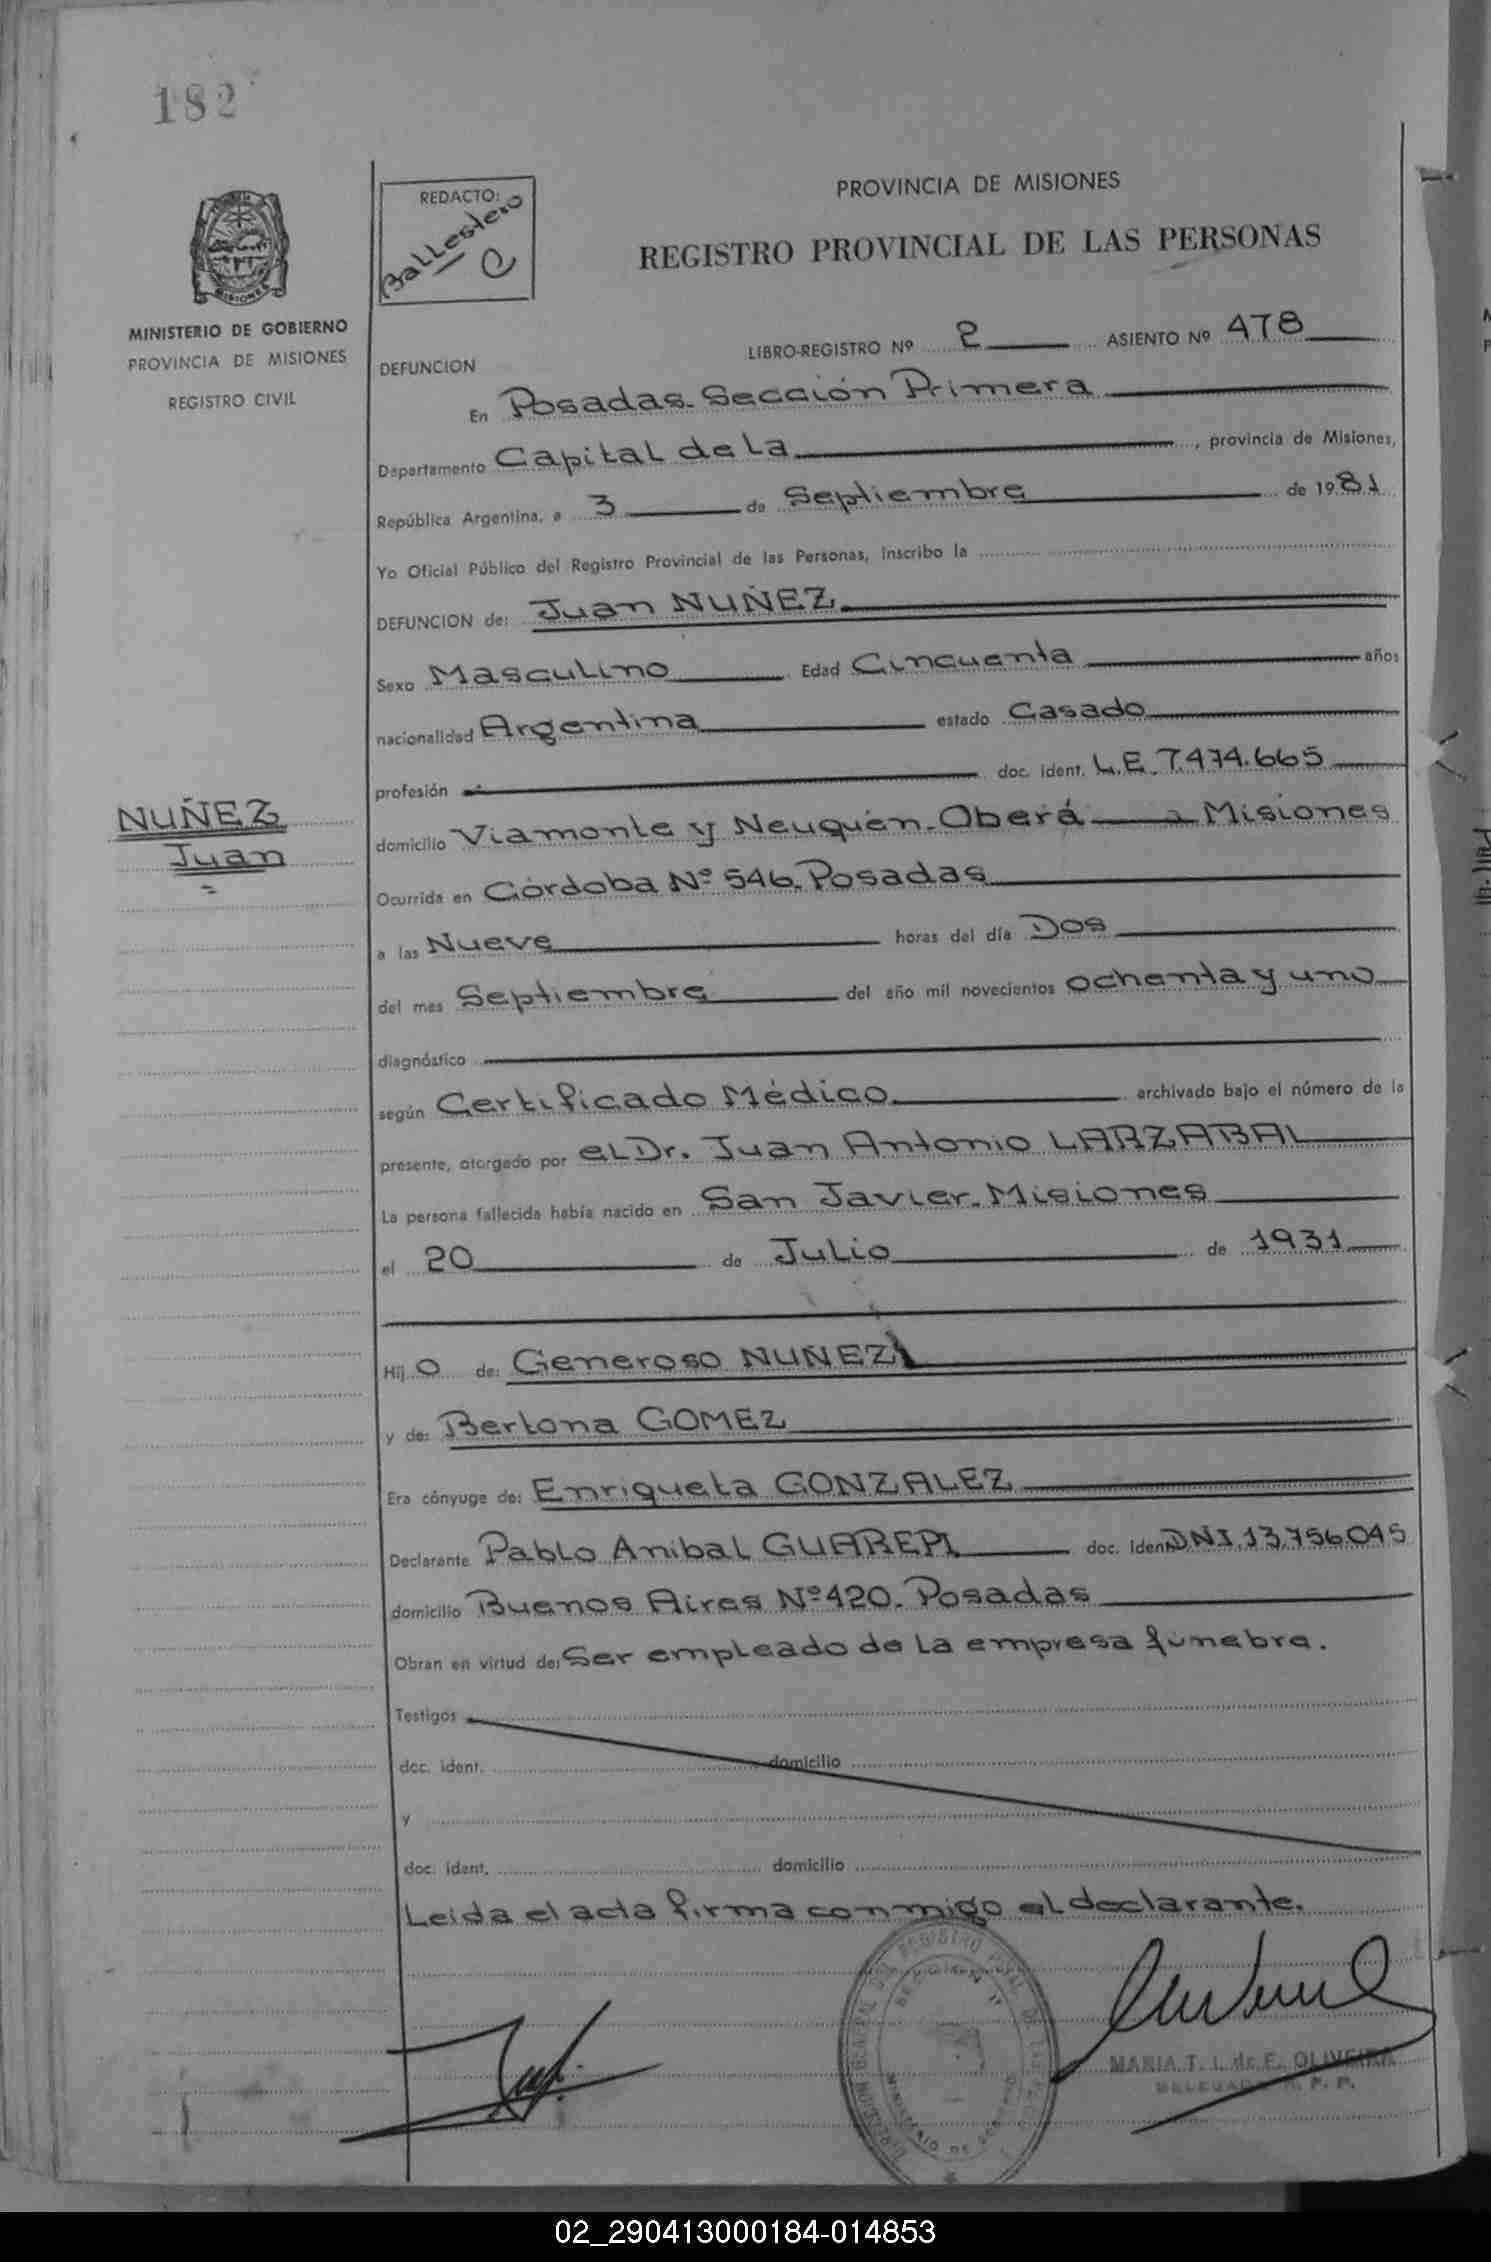 182
REDACTO:
Ballestero
PROVINCIA DE MISIONES
REGISTRO PROVINCIAL DE LAS PERSONAS
MISIONES
MINISTERIO DE GOBIERNO
PROVINCIA DE MISIONES
REGISTRO CIVIL
LIBRO-REGISTRO Nº 2 ASIENTO Nº 478
DEFUNCION
En Posadas. Sección Primera
Departamento Capital de La, provincia de Misiones,
República Argentina, a 3 de Septiembre de 1981
Yo Oficial Público del Registro Provincial de las Personas, inscribo la
DEFUNCION de: Juan NUÑEZ
Sexo Masculino Edad Cincuenta años
nacionalidad Argentina estado Casado
profesión doc. ident. L.E. 7.474.665
NUÑEZ
Juan
domicilio Viamonte y Neuquén. Oberá Misiones
Ocurrida en Córdoba Nº 546. Posadas
a las Nueve horas del día Dos
del mes Septiembre del año mil novecientos ochenta y uno
diagnóstico
según Certificado Médico archivado bajo el número de la
presente, otorgado por el Dr. Juan Antonio LARZABAL
La persona fallecida había nacido en San Javier. Misiones
el 20 de Julio de 1931
Hij o de: Generoso NUÑEZ
y de: Bertona GOMEZ
Era cónyuge de: Enriqueta GONZALEZ
Declarante Pablo Anibal GUAREPI doc. iden DNI. 13.756.045
domicilio Buenos Aires Nº 420. Posadas
Obran en virtud de: Ser empleado de la empresa fúnebre.
Testigos
doc. ident. domicilio
y
doc. ident. domicilio
Leida el acta firma conmigo el declarante.
MARIA T. I. de E. OLIVEIRA
02_290413000184-014853